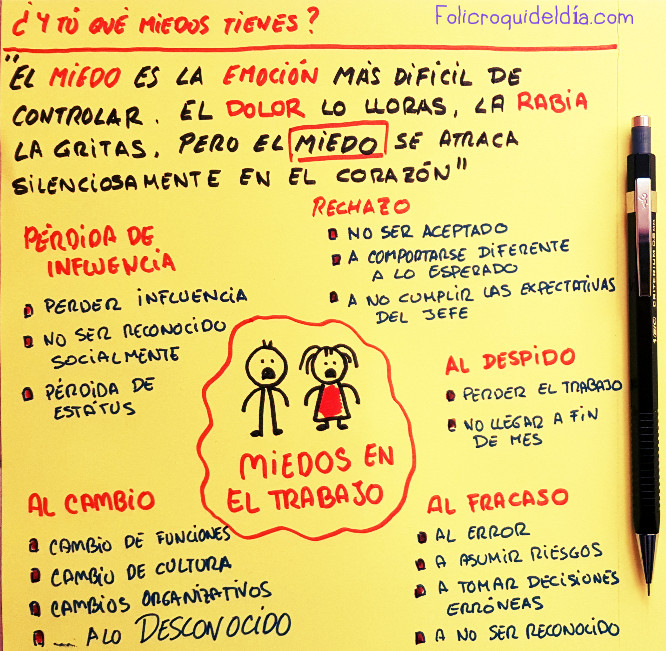 ¿Y TÚ QUÉ MIEDOS TIENES?
Folicroquideldía.com
"EL MIEDO ES LA EMOCIÓN MÁS DIFÍCIL DE
CONTROLAR. EL DOLOR LO LLORAS, LA RABIA
LA GRITAS, PERO EL MIEDO SE ATRACA
SILENCIOSAMENTE EN EL CORAZÓN"
PÉRDIDA DE
INFLUENCIA
PERDER INFLUENCIA
NO SER RECONOCIDO
SOCIALMENTE
PÉRDIDA DE
ESTÁTUS
RECHAZO
NO SER ACEPTADO
A COMPORTARSE DIFERENTE
A LO ESPERADO
A NO CUMPLIR LAS EXPECTATIVAS
DEL JEFE
AL DESPIDO
PERDER EL TRABAJO
NO LLEGAR A FIN
DE MES
MIEDOS EN
EL TRABAJO
AL CAMBIO
CAMBIO DE FUNCIONES
CAMBIO DE CULTURA
CAMBIOS ORGANIZATIVOS
... A LO DESCONOCIDO
AL FRACASO
AL ERROR
A ASUMIR RIESGOS
A TOMAR DECISIONES
ERRÓNEAS
A NO SER RECONOCIDO